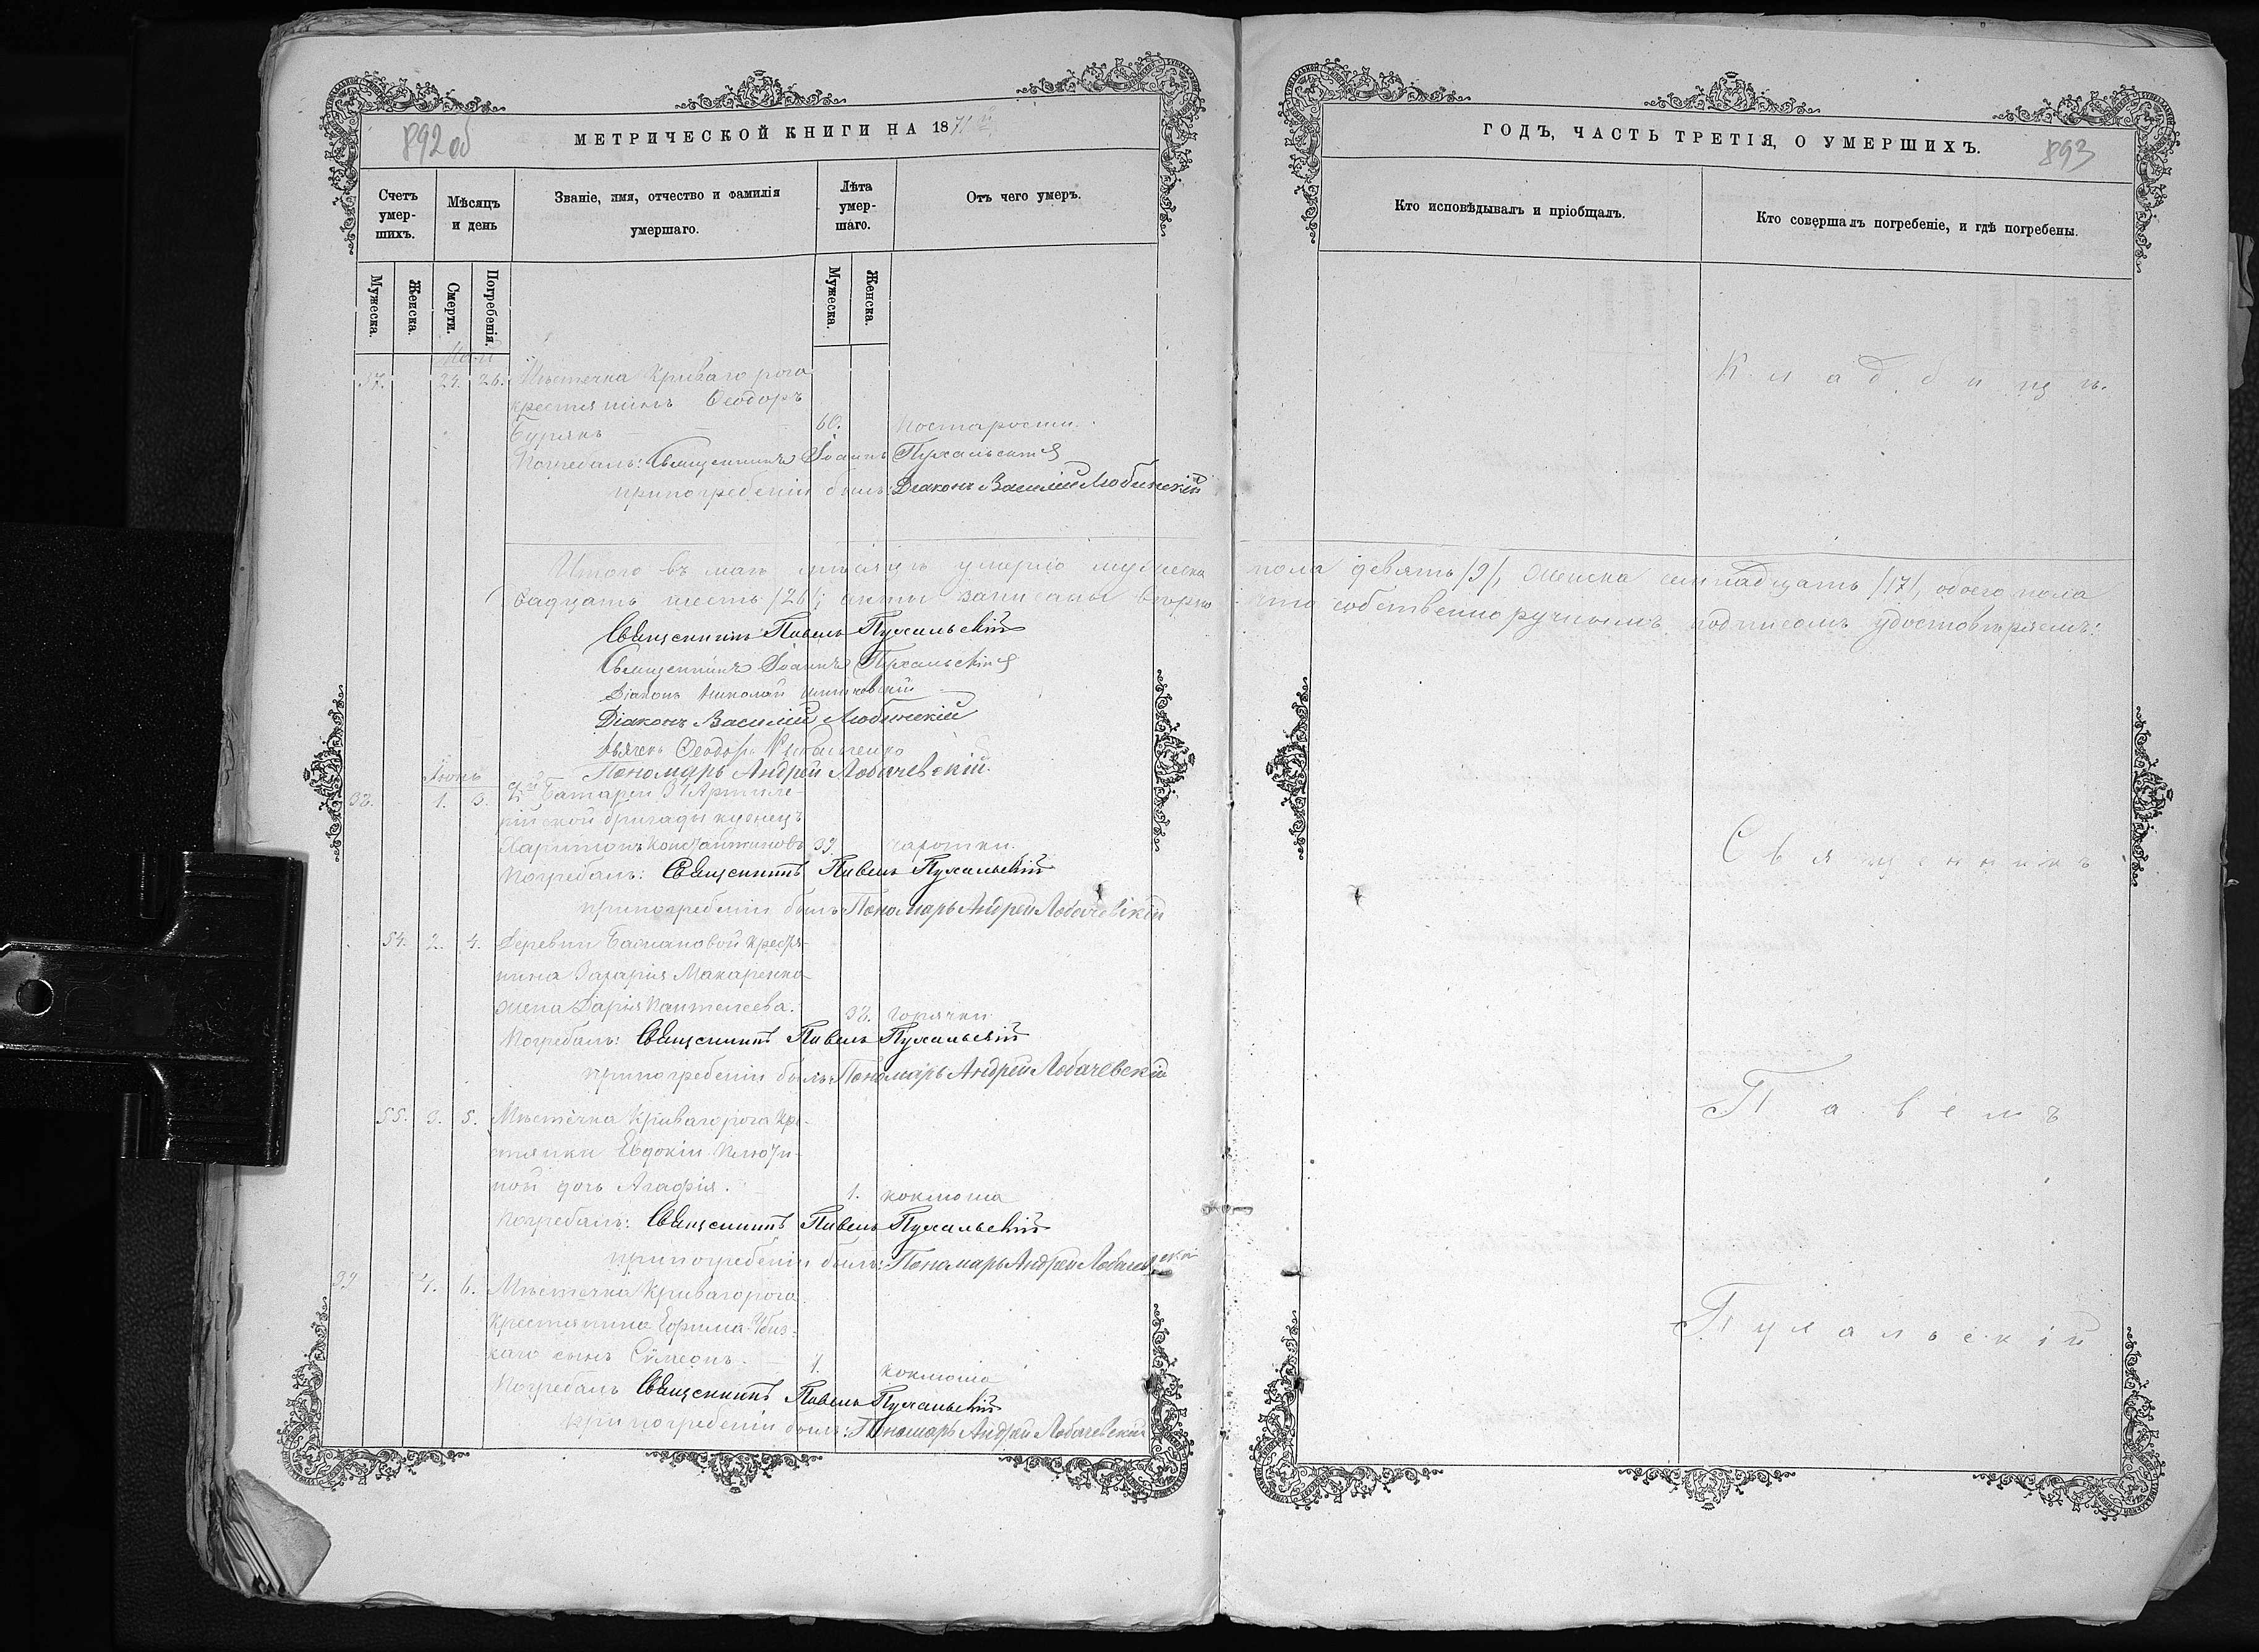 892 об
МЕТРИЧЕСКОЙ КНИГИ НА 1871 й
Счетъ умер-шихъ.
Мѣсяцъ и день
Званіе, имя, отчество и фамилія умершаго.
Лѣта умер-шаго.
Отъ чего умеръ.
Мужеска.
Женска.
Смерти.
Погребенія.
Мужеска.
Женска.
Май
37. 24. 26. Мѣстечка Криваго рога
крестянинъ Ѳеодоръ
Бурякъ 60. по старости.
Погребалъ: Священникъ Іоаннъ Пухальскій
при погребеніи былъ: Діаконъ Василій Любинскій
Итого въ маѣ мѣсяцѣ умерло мужеска
двадцать шесть /26/; акты записаны вѣрно
Священникъ Павелъ Пухальскій
Священникъ Іоаннъ Пухальскій
Діаконъ Николай
Діаконъ Василій Любинскій
Дьячекъ Ѳеодоръ
Пономарь Андрей Лобачевскій.
Іюнь
38. 1. 3. Батареи 31 Артиле-
рійской бригады кузнецъ
Харитонъ Константиновъ 39. чахотки.
Погребалъ: Священникъ Павелъ Пухальскій
при погребеніи былъ: Пономарь Андрей Лобачевскій
54. 2. 4. Деревни Божановой крестя-
нина Захарія Макаренка
жена Дарія Пантелеева. 38. горячки
Погребалъ: Священникъ Павелъ Пухальскій
при погребеніи былъ: Пономарь Андрей Лобачевскій
55. 3. 5. Мѣстечка Криваго рога кре-
стянки Евдокіи
ной дочь Агафія. 1. коклюша
Погребалъ: Священникъ Павелъ Пухальскій
при погребеніи былъ: Пономарь Андрей Лобачевскій
39 4. 6. Мѣстечка Криваго рога
Крестянина Ефрима
каго сынъ Сѵмеонъ. 1. коклюша
Погребалъ Священникъ Павелъ Пухальскій
при погребеніи былъ: Пономарь Андрей Лобачевскій
ГОДЪ, ЧАСТЬ ТРЕТІЯ, О УМЕРШИХЪ.
893
Кто исповѣдывалъ и пріобщалъ.
Кто совершалъ погребеніе, и гдѣ погребены.
Кладбищѣ.
пола девять /9/, женска семнадцать /17/, обоего пола
что собственноручнымъ подписомъ удостовѣряемъ:
Священникъ
Павелъ
Пухальскій